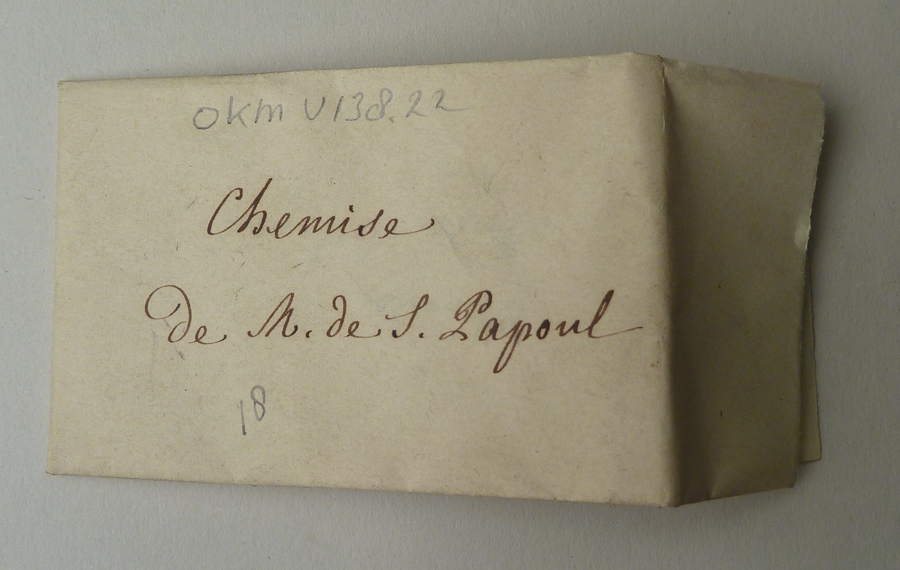 OKM V138.22
Chemise
De M. de S. Papoul
18